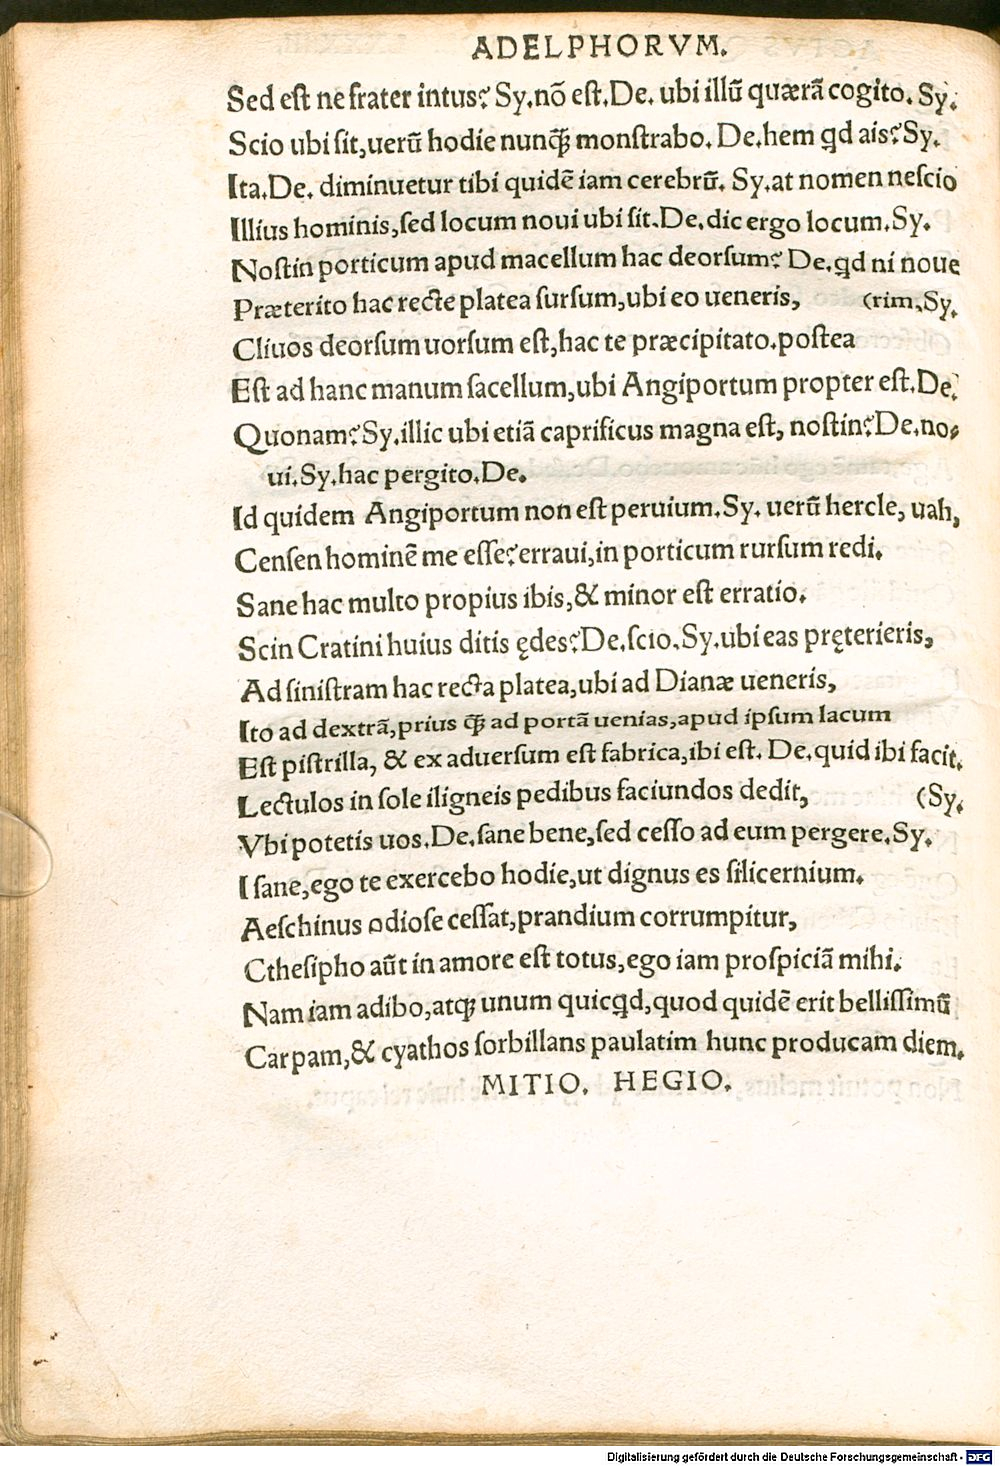 ADELPHORVM.
Sed est ne frater intus? Sy.nō est.De. ubi illū quærā cogito. Sy.
Scio ubi sit,uerū hodie nunq̃ monstrabo. De.hem qd ais? Sy.
Ita.De. diminuetur tibi quidē iam cerebrū. Sy.at nomen nescio
Illius hominis,sed locum noui ubi sit.De.dic ergo locum.Sy.
Nostin porticum apud macellum hac deorsum? De.qd ni noue
Præterito hac recte platea sursum,ubi eo ueneris, (rim.Sy.
Cliuos deorsum uorsum est,hac te præcipitato.postea
Est ad hanc manum sacellum,ubi Angiportum propter est.De.
Quonam? Sy.illic ubi etiā caprificus magna est, nostin? De.no-
ui.Sy.hac pergito.De.
Id quidem Angiportum non est peruium.Sy. uerū hercle, uah,
Censen hominē me esse? erraui,in porticum rursum redi.
Sane hac multo propius ibis,& minor est erratio.
Scin Cratini huius ditis ędes? De.scio.Sy.ubi eas pręterieris,
Ad sinistram hac recta platea,ubi ad Dianæ ueneris,
Ito ad dextrā,prius q̃ ad portā uenias,apud ipsum lacum
Est pistrilla, & ex aduersum est fabrica,ibi est. De.quid ibi facit.
Lectulos in sole iligneis pedibus faciundos dedit, (Sy.
Vbi potetis uos.De.sane bene,sed cesso ad eum pergere.Sy.
I sane,ego te exercebo hodie,ut dignus es silicernium.
Aeschinus odiose cessat,prandium corrumpitur,
Cthesipho aūt in amore est totus,ego iam prospiciā mihi.
Nam iam adibo,atq; unum quicqd,quod quidē erit bellissimū
Carpam,& cyathos sorbillans paulatim hunc producam diem.
MITIO. HEGIO.
Digitalisierung gefördert durch die Deutsche Forschungsgemeinschaft - DFG